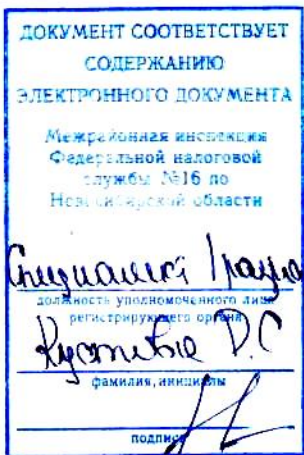 ДОКУМЕНТ СООТВЕТСТВУЕТ
СОДЕРЖАНИЮ
ЭЛЕКТРОННОГО ДОКУМЕНТА
Межрайонная инспекция
Федеральной налоговой
службы №16 по
Новосибирской области
Специалист 1
должность уполномоченного лица
регистрирующего органа
фамилия, инициалы
подпись